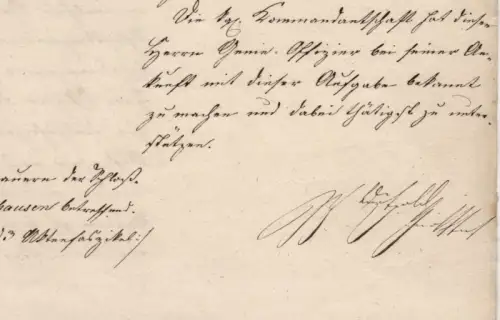 Die kgl. Kommandantschaft hat diesen
Herrn Genie-Offizier bei seiner An-
kunft mit dieser Aufgabe bekannt
zu machen und dabei thätigst zu unter-
stützen.
auern der Schloß-
hausen betreffend.
3 Aktenfaszikel :/